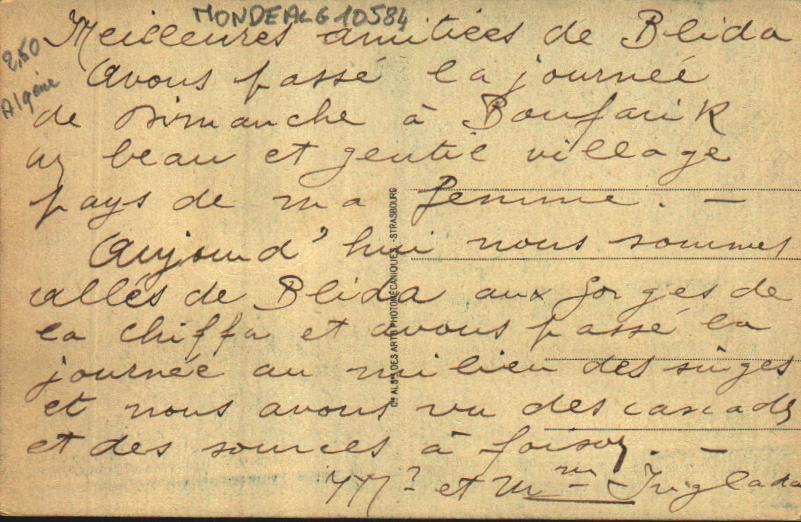 MONDEALG10584
2,50
Algérie
Meilleures amitiées de Blida
Avons passé la journée
de Dimanche à Boufarik
un beau et gentil village
pays de ma femme. —
Aujourd'hui nous sommes
allés de Blida aux gorges de
la chiffa et avons passé la
journée au milieu des singes
et nous avons vu des cascades
et des sources à foison. —
Mr et Mme Inglada
Cie ALSne DES ARTS PHOTOMÉCANIQUES - STRASBOURG